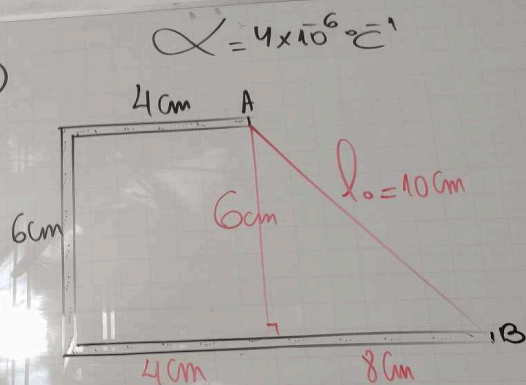 α = 4×10⁻⁶ °C⁻¹
)
4cm A
6cm 6cm l₀=10cm
B
4cm 8cm